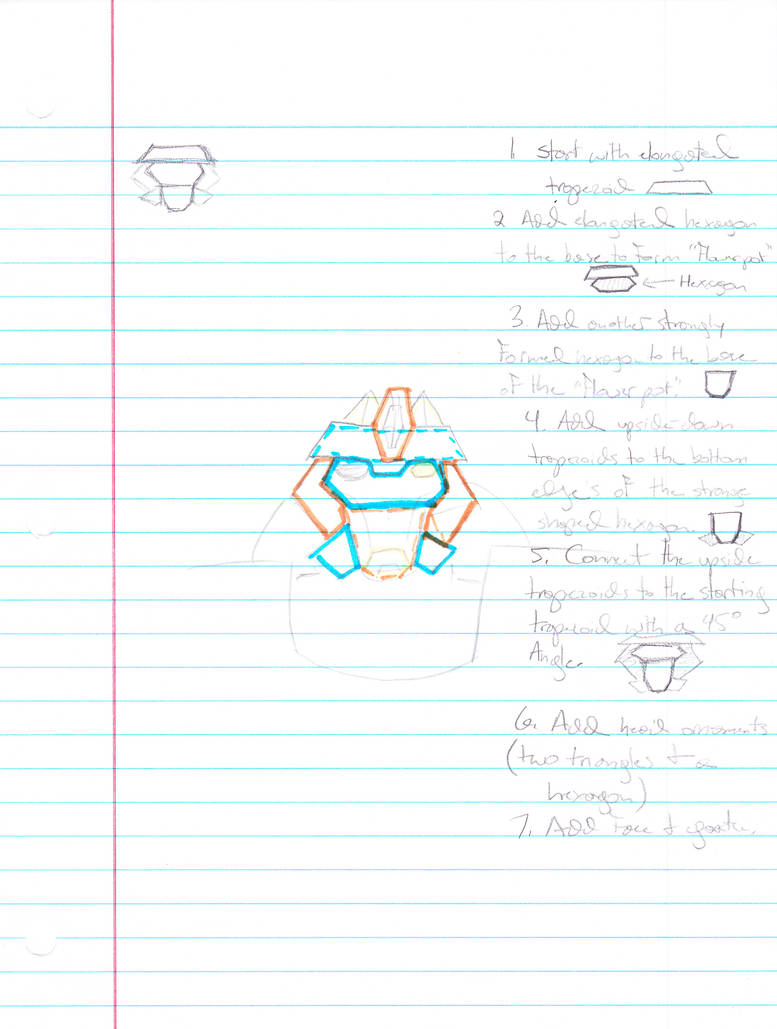 1. Start with elongated
trapezoid
2 Add elongated hexagon
to the base to Form "Flower pot"
← Hexagon
3. Add another strongly
Formed hexagon to the base
of the "Flower pot".
4. Add upside down
trapezoids to the bottom
edge's of the strange
shaped hexagon.
5. Connect the upside
trapezoids to the starting
trapezoid with a 45°
Angle.
6. Add head ornaments
(two triangles + a
hexagon)
7. Add Face + goatee.